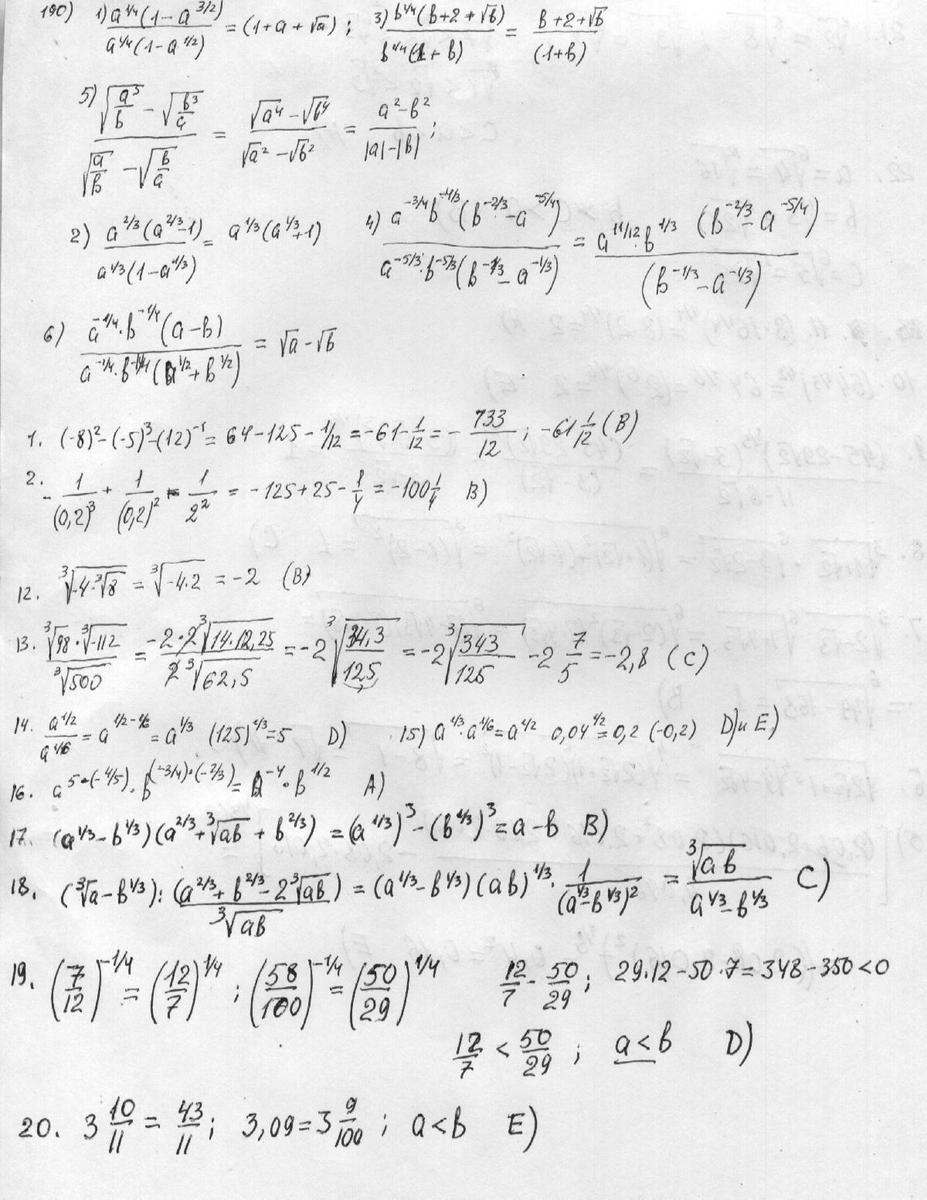 190) 1) a^{1/4}(1-a^{3/2}) / a^{1/4}(1-a^{1/2}) = (1+a+√a); 3) b^{1/4}(b+2+√b) / b^{1/4}(1+b) = b+2+√b / (1+b)
5) (√(a³/b) - √(b³/a)) / (√(a/b) - √(b/a)) = (√a⁴ - √b⁴) / (√a² - √b²) = (a²-b²) / (|a|-|b|);
2) a^{2/3}(a^{2/3}-1) / a^{1/3}(1-a^{1/3}) = a^{1/3}(a^{1/3}+1) 4) a^{-3/4}b^{-4/3}(b^{-2/3}-a^{-5/4}) / a^{-5/3}·b^{-5/3}(b^{-1/3}-a^{-1/3}) = a^{11/12}·b^{1/3} (b^{-2/3}-a^{-5/4}) / (b^{-1/3}-a^{-1/3})
6) a^{-1/4}·b^{-1/4}(a-b) / a^{-1/4}·b^{-1/4}(a^{1/2}+b^{1/2}) = √a-√b
1. (-8)²-(-5)³-(12)^{-1} = 64-125-1/12 = -61-1/12 = -733/12; -61 1/12 (B)
2. -1/(0,2)³ + 1/(0,2)² - 1/2² = -125+25-1/4 = -100 1/4 B)
12. ∛(-4·∛8) = ∛(-4·2) = -2 (B)
13. ∛98·∛-112 / ∛500 = -2·2∛(14·12,25) / 2∛62,5 = -2∛(34,3/12,5) = -2∛(343/125) -2 7/5 = -2,8 (C)
14. a^{1/2} / a^{1/6} = a^{1/2-1/6} = a^{1/3} (125)^{1/3}=5 D) 15) a^{1/3}·a^{1/6}=a^{1/2} 0,04^{1/2}=0,2 (-0,2) D) и E)
16. a^{5·(-4/5)}·b^{(-3/4)·(-2/3)} = a^{-4}·b^{1/2} A)
17. (a^{1/3}-b^{1/3})(a^{2/3}+∛ab+b^{2/3}) = (a^{1/3})³-(b^{1/3})³ = a-b B)
18. (∛a-b^{1/3}):(a^{2/3}+b^{2/3}-2∛ab) / ∛ab = (a^{1/3}-b^{1/3})(ab)^{1/3}·1/(a^{1/3}-b^{1/3})² = ∛ab / a^{1/3}-b^{1/3} C)
19. (7/12)^{-1/4} = (12/7)^{1/4}; (58/100)^{-1/4} = (50/29)^{1/4} 12/7 - 50/29; 29·12-50·7=348-350<0
12/7 < 50/29; a<b D)
20. 3 10/11 = 43/11; 3,09=3 9/100; a<b E)